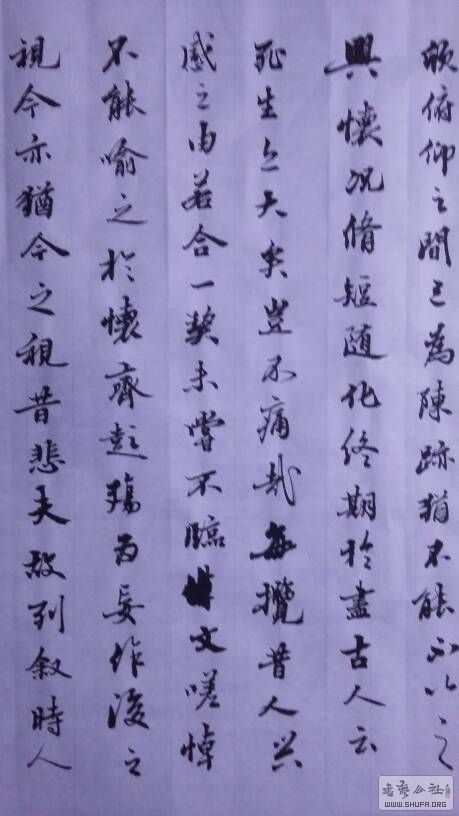 欣俯仰之間已為陳跡猶不能不以之
興懷況脩短随化終期於盡古人云
死生亦大矣豈不痛哉每攬昔人兴
感之由若合一契未嘗不臨文嗟悼
不能喻之於懷齊彭殤為妄作後之
視今亦猶今之視昔悲夫故列叙時人
書藝公社
WWW.SHUFA.ORG